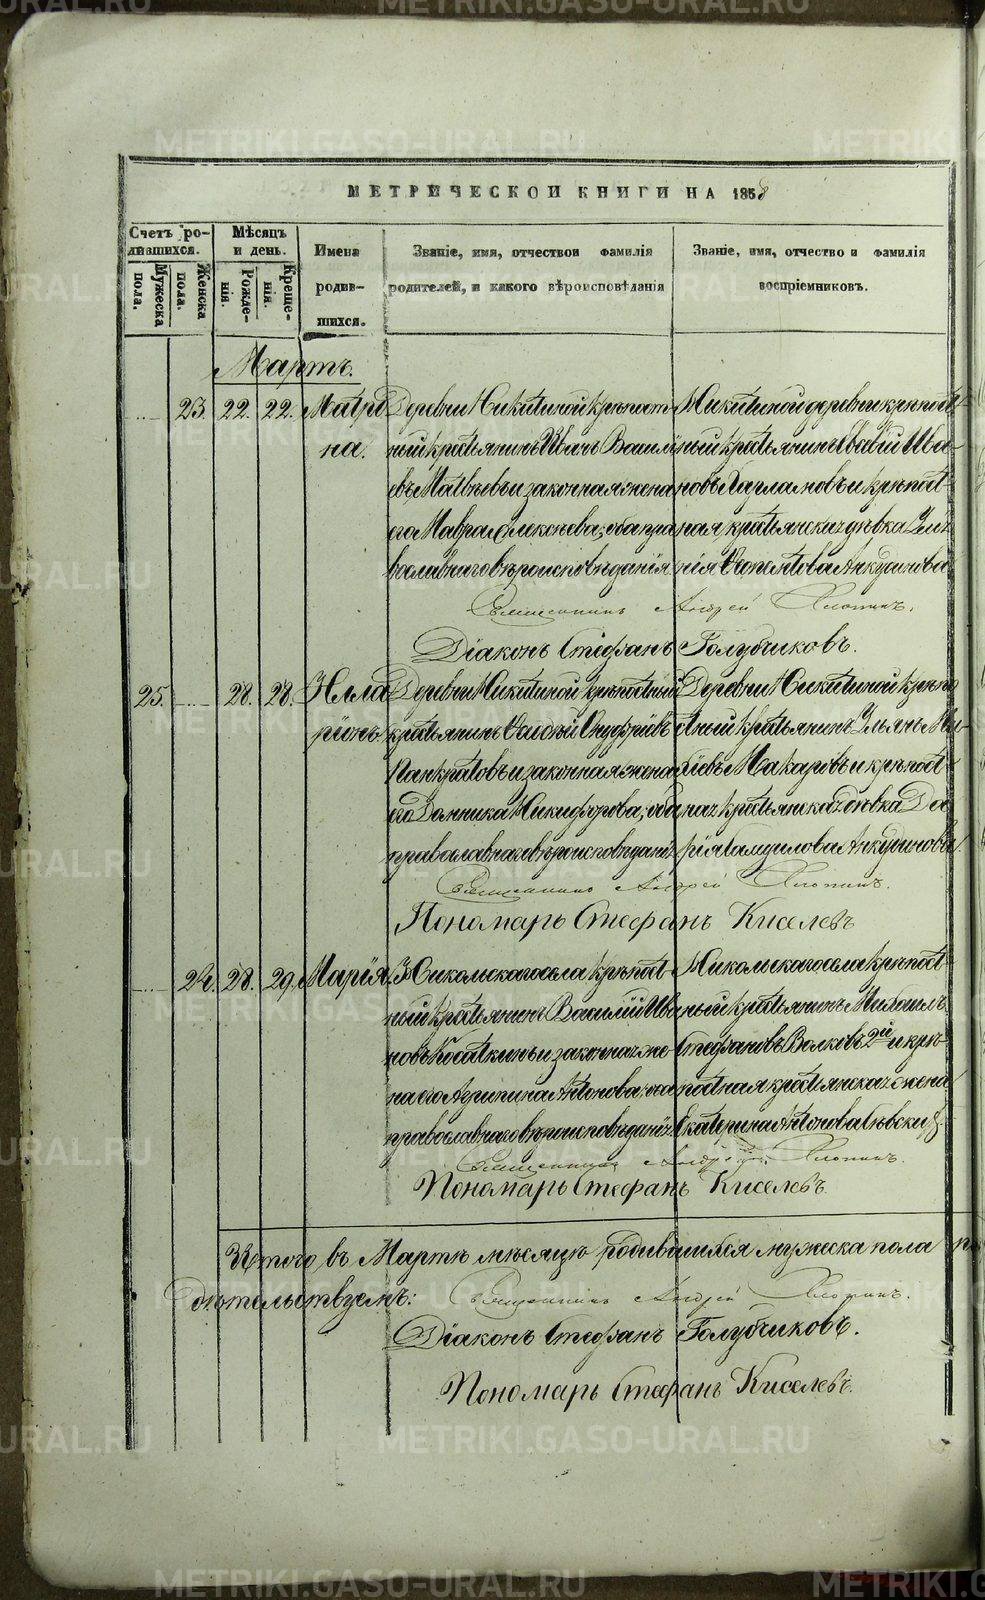 МЕТРИЧЕСКОЙ КНИГИ НА 1858
Счетъ ро-
дившихся.
Мужеска пола.
Женска пола.
Мѣсяцъ
и день.
Рожде-
нія.
Креще-
нія.
Имена
родив-
шихся.
Званіе, имя, отчествои фамилія
родителей, и какого вѣроисповѣданія
Званіе, имя, отчество и фамилія
воспріемниковъ.
Мартъ.
23. 22. 22. Матро
на.
Деревни Никитиной крѣпост
ный крестьянинъ Иванъ Васил
евъ Матвѣевъ и законная жена
его Мавра Алексѣева; оба пра
вославнаго вѣроисповѣданія
Никитиной деревни крѣпост
ный крестьянинъ Ива
новъ Харламовъ и крѣпост
ная крестьянская дѣвка
Анкудинова
Священникъ Андрей Хлопинъ.
Діаконъ Стефанъ Голубчиковъ.
25. 28. 28. Илла
ріонъ
Деревни Никитиной крѣпостный
крестьянинъ
Панкратовъ и законная жена
его Домника Никифорова; оба
православнаго вѣроисповѣданія
Деревни Никитиной крѣпо
стный крестьянинъ Ульянъ
Макаровъ и крѣпост
ная крестьянская дѣвка Да
рія Самуилова Анкудинова
Священникъ Андрей Хлопинъ.
Пономарь Стефанъ Киселевъ
24. 28. 29. Марія.
Никольскаго села крѣпост
ный крестьянинъ Василій Ива
новъ Косаткинъ и законная же
на его Агрипина Антонова; оба
православнаго вѣроисповѣданія
Никольскаго села крѣпост
ный крестьянинъ Михаилъ
Стефановъ Волковъ 2й и крѣ
постная крестьянская жена
Екатерина Антонова
Священникъ Андрей Хлопинъ.
Пономарь Стефанъ Киселевъ.
Итого въ Мартѣ мѣсяцѣ родившихся мужеска пола
дѣтельствуемъ: Священникъ Андрей Хлопинъ.
Діаконъ Стефанъ Голубчиковъ.
Пономарь Стефанъ Киселевъ.
METRIKI.GASO-URAL.RU